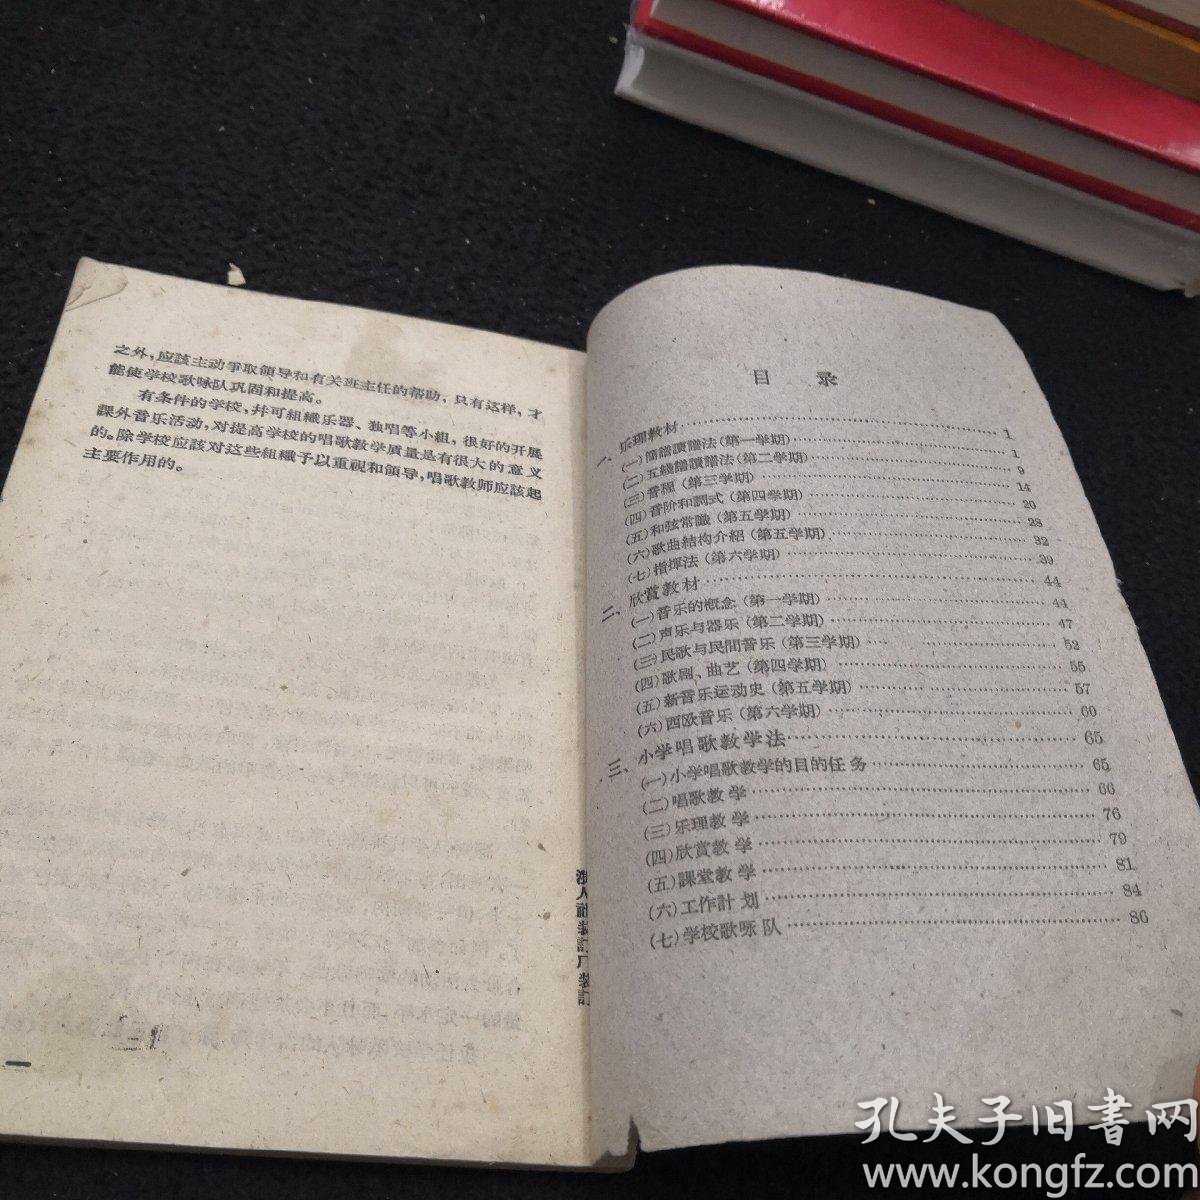 之外，应該主动爭取領导和有关班主任的帮助，只有这样，才
能使学校歌咏队巩固和提高。
有条件的学校，幷可組織乐器、独唱等小組，很好的开展
課外音乐活动，对提高学校的唱歌教学质量是有很大的意义
的。除学校应該对这些組織予以重視和領导，唱歌教师应該起
主要作用的。
装訂厂装訂
目 录
一、乐理教材 1
(一)簡譜讀譜法(第一学期) 1
(二)五綫譜讀譜法(第二学期) 9
(三)音程(第三学期) 14
(四)音阶和調式(第四学期) 20
(五)和弦常識(第五学期) 28
(六)歌曲結构介紹(第五学期) 32
(七)指揮法(第六学期) 39
二、欣賞教材 44
(一)音乐的概念(第一学期) 44
(二)声乐与器乐(第二学期) 47
(三)民歌与民間音乐(第三学期) 52
(四)歌剧、曲艺(第四学期) 55
(五)新音乐运动史(第五学期) 57
(六)西欧音乐(第六学期) 60
三、小学唱歌教学法 65
(一)小学唱歌教学的目的任务 65
(二)唱歌教学 66
(三)乐理教学 76
(四)欣賞教学 79
(五)課堂教学 81
(六)工作計划 84
(七)学校歌咏队 86
孔夫子旧書网
www.kongfz.com